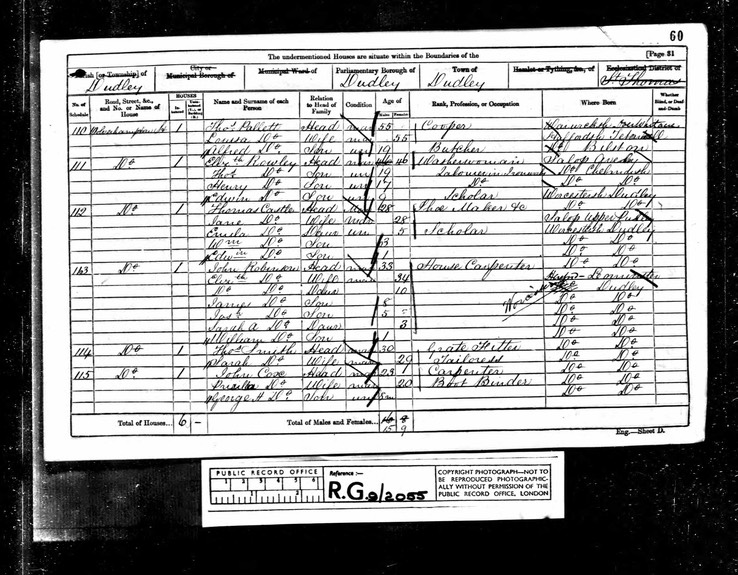 60
The undermentioned Houses are situate within the Boundaries of the [Page 31
Parish [or Township] of City or Municipal Borough of Municipal Ward of Parliamentary Borough of Town of Hamlet or Tything, &c., of Ecclesiastical District of
Dudley Dudley Dudley St Thomas
No. of Schedule Road, Street, &c., and No. or Name of House HOUSES Inhabited Uninhabited (U.), or Building (B.) Name and Surname of each Person Relation to Head of Family Condition Age of Males Females Rank, Profession, or Occupation Where Born Whether Blind, or Deaf-and-Dumb
110 1 Thos Pallett Head mar 55 Cooper
Louisa Do Wife mar 55
Alfred Do Son un 19 Butcher Do Bilston
111 Do 1 Elizth Rowley Head 46 Washerwoman Salop
Thos Do Son un 19
Henry Do Son un 17 Do Do Do
Edwin Do Son un 9 Scholar Worcestsh Dudley
112 Do 1 Thomas Head mar 28 Shoe Maker &c Do Do
Jane Do Wife mar 28 Salop Upper
Do Daur un 5 Scholar Worcestsh Dudley
Wm Do Son 3 Do Do
Edwin Do Son 1 Do Do
113 Do 1 John Robinson Head mar 33 House Carpenter Do Do
Elizth Do Wife mar 34
Do Do Daur 10 Dudley
James Do Son 8 Do Do
Josh Do Son 5 Do Do
Sarah A Do Daur 3 Do Do
William Do Son 1 Do Do
114 Do 1 Thos Smith Head mar 30 Do Do
Sarah Do Wife mar 29 Tailoress Do Do
115 Do 1 John Cox Head mar 23 Carpenter Do Do
Do Wife mar 20 Boot Binder Do Do
George H Do Son un Do Do
Total of Houses... 6 – Total of Males and Females... 16 8
15 9
Eng.—Sheet D.
PUBLIC RECORD OFFICE
1 2 3 4 5 6
1 2
Reference :-
R.G. 9/2055
COPYRIGHT PHOTOGRAPH—NOT TO
BE REPRODUCED PHOTOGRAPHIC-
ALLY WITHOUT PERMISSION OF THE
PUBLIC RECORD OFFICE, LONDON